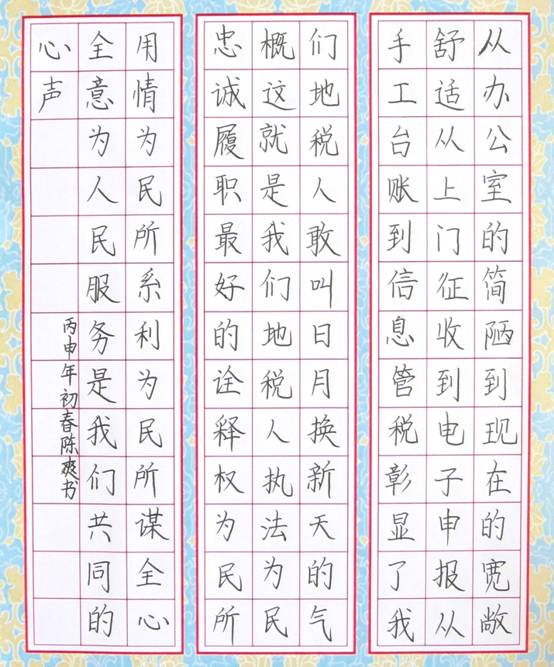 从办公室的简陋到现在的宽敞
舒适从上门征收到电子申报从
手工台账到信息管税彰显了我
们地税人敢叫日月换新天的气
概这就是我们地税人执法为民
忠诚履职最好的诠释权为民所
用情为民所系利为民所谋全心
全意为人民服务是我们共同的
心声
丙申年初春陈爽书